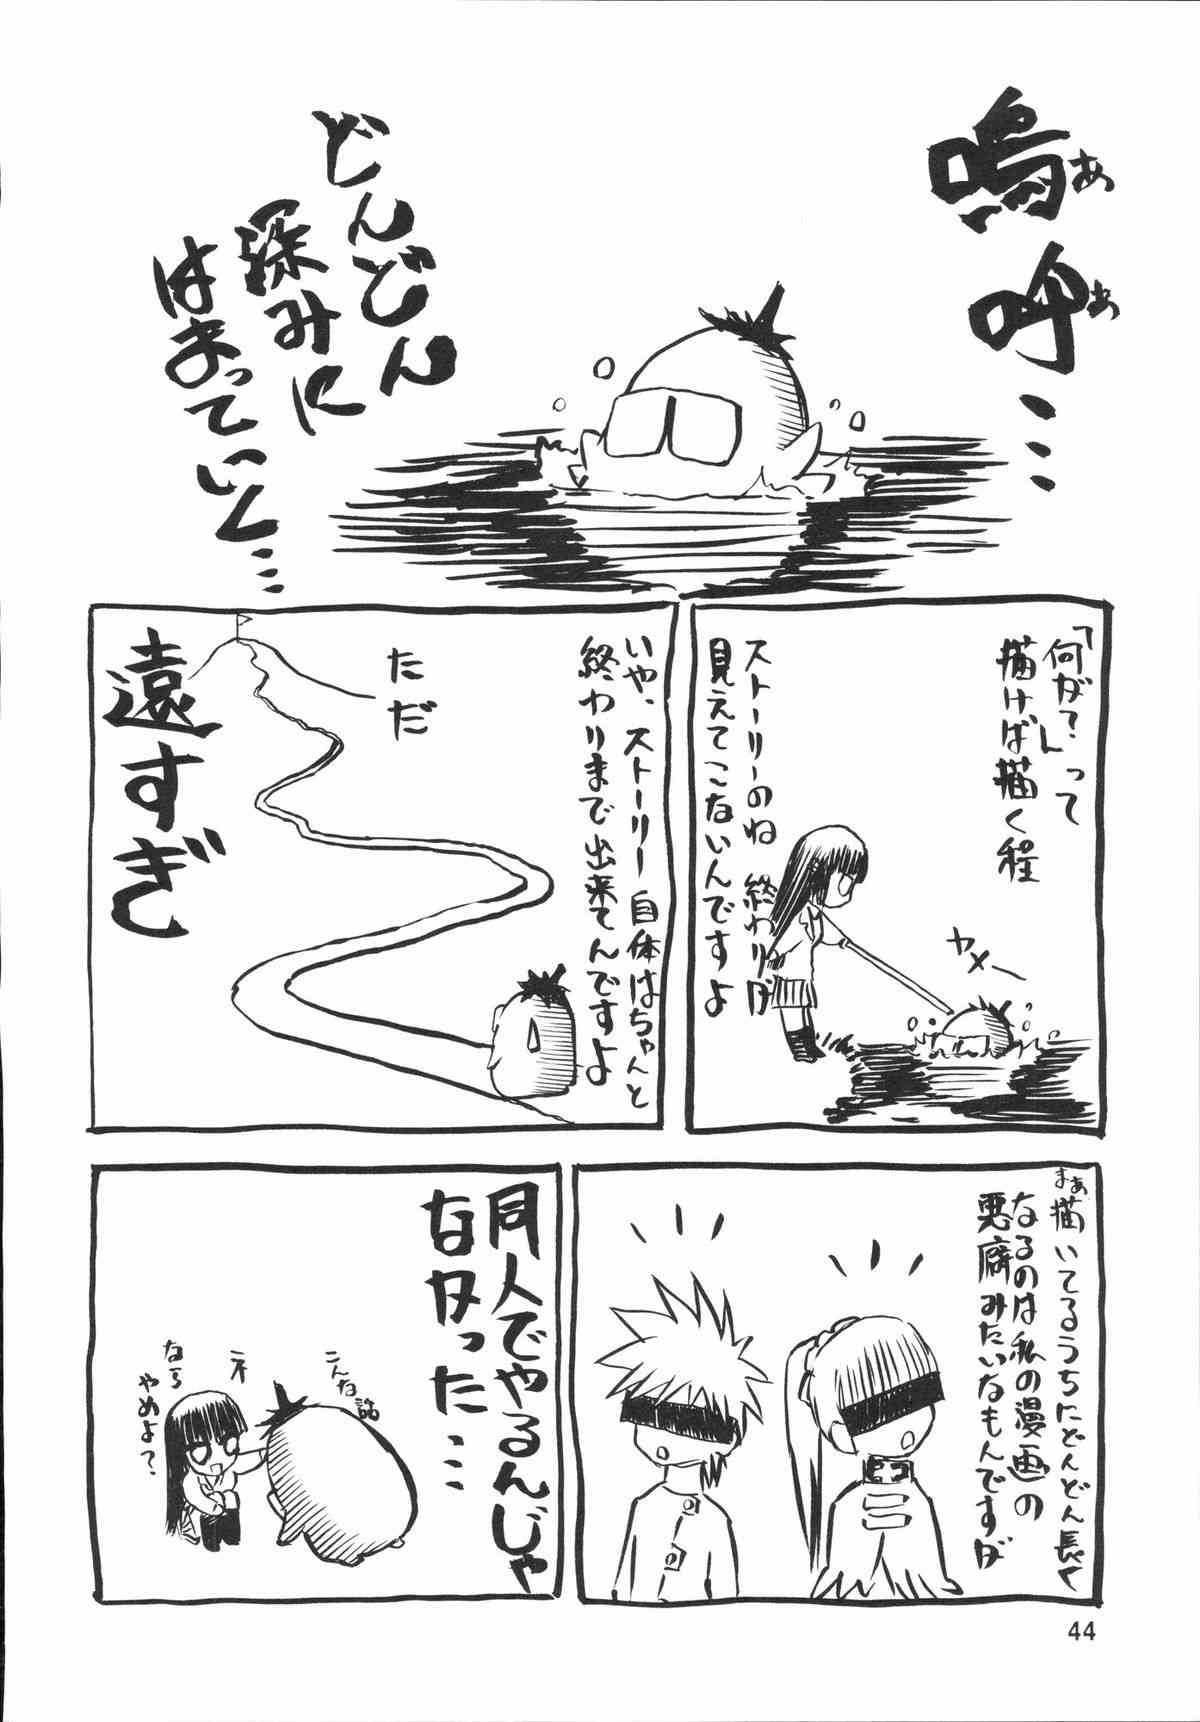 嗚呼…
ああ
どんどん
深みに
はまっていく…
「何が?」って
描けば描く程
ストーリーのね 終わりが
見えてこないんですよ
ヤメー
いや、ストーリー自体はちゃんと
終わりまで出来てんですよ
ただ
遠すぎ
まぁ描いてるうちにどんどん長く
なるのは私の漫画の
悪癖みたいなもんですが
同人でやるんじゃ
なかった…
こんな話
ネ
なら
やめよ?
44